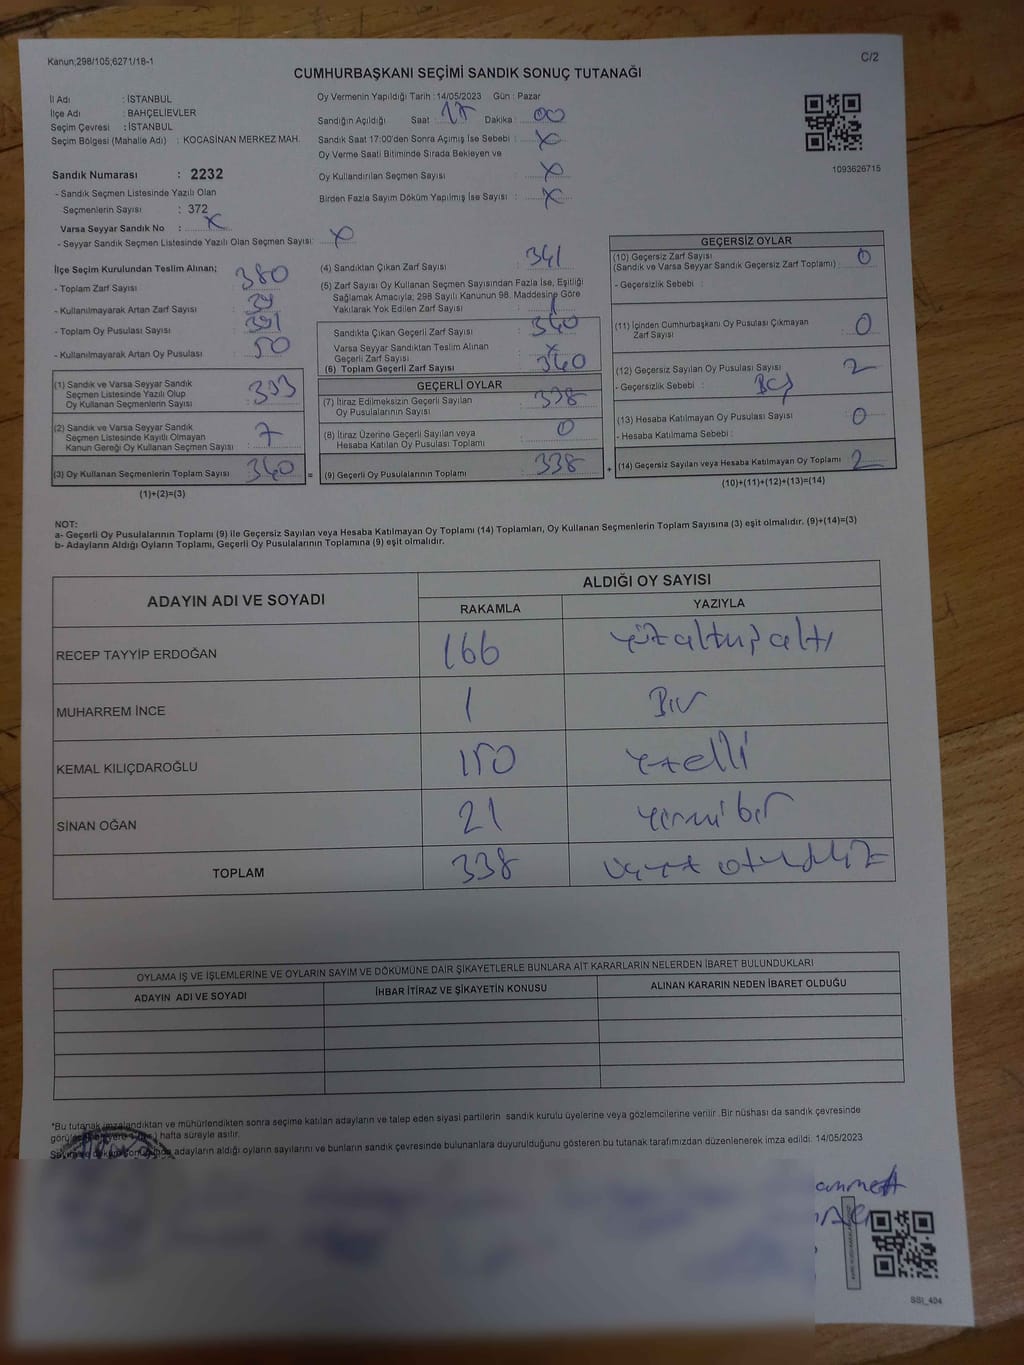 Kanun;298/105;6271/18-1
C/2
CUMHURBAŞKANI SEÇİMİ SANDIK SONUÇ TUTANAĞI
İl Adı : İSTANBUL
İlçe Adı : BAHÇELİEVLER
Seçim Çevresi : İSTANBUL
Seçim Bölgesi (Mahalle Adı) : KOCASİNAN MERKEZ MAH.
Sandık Numarası : 2232
- Sandık Seçmen Listesinde Yazılı Olan
Seçmenlerin Sayısı : 372
Varsa Seyyar Sandık No : X
- Seyyar Sandık Seçmen Listesinde Yazılı Olan Seçmen Sayısı: X
Oy Vermenin Yapıldığı Tarih : 14/05/2023 Gün : Pazar
Sandığın Açıldığı Saat : 17 Dakika : 00
Sandık Saat 17:00'den Sonra Açımış İse Sebebi : X
Oy Verme Saati Bitiminde Sırada Bekleyen ve
Oy Kullandırılan Seçmen Sayısı : X
Birden Fazla Sayım Döküm Yapılmış İse Sayısı : X
1093626715
İlçe Seçim Kurulundan Teslim Alınan;
- Toplam Zarf Sayısı : 380
- Kullanılmayarak Artan Zarf Sayısı : 39
- Toplam Oy Pusulası Sayısı : 391
- Kullanılmayarak Artan Oy Pusulası : 50
(1) Sandık ve Varsa Seyyar Sandık
Seçmen Listesinde Yazılı Olup
Oy Kullanan Seçmenlerin Sayısı : 333
(2) Sandık ve Varsa Seyyar Sandık
Seçmen Listesinde Kayıtlı Olmayan
Kanun Gereği Oy Kullanan Seçmen Sayısı : 7
(3) Oy Kullanan Seçmenlerin Toplam Sayısı : 340
(1)+(2)=(3)
(4) Sandıktan Çıkan Zarf Sayısı : 341
(5) Zarf Sayısı Oy Kullanan Seçmen Sayısından Fazla İse, Eşitliği
Sağlamak Amacıyla; 298 Sayılı Kanunun 98. Maddesine Göre
Yakılarak Yok Edilen Zarf Sayısı : 1
Sandıkta Çıkan Geçerli Zarf Sayısı : 340
Varsa Seyyar Sandıktan Teslim Alınan
Geçerli Zarf Sayısı : X
(6) Toplam Geçerli Zarf Sayısı : 340
GEÇERLİ OYLAR
(7) İtiraz Edilmeksizin Geçerli Sayılan
Oy Pusulalarının Sayısı : 338
(8) İtiraz Üzerine Geçerli Sayılan veya
Hesaba Katılan Oy Pusulası Toplamı : 0
= (9) Geçerli Oy Pusulalarının Toplamı : 338
GEÇERSİZ OYLAR
(10) Geçersiz Zarf Sayısı : 0
(Sandık ve Varsa Seyyar Sandık Geçersiz Zarf Toplamı)
- Geçersizlik Sebebi :
(11) İçinden Cumhurbaşkanı Oy Pusulası Çıkmayan
Zarf Sayısı : 0
(12) Geçersiz Sayılan Oy Pusulası Sayısı : 2
- Geçersizlik Sebebi : Boş
(13) Hesaba Katılmayan Oy Pusulası Sayısı : 0
- Hesaba Katılmama Sebebi :
+ (14) Geçersiz Sayılan veya Hesaba Katılmayan Oy Toplamı : 2
(10)+(11)+(12)+(13)=(14)
NOT:
a- Geçerli Oy Pusulalarının Toplamı (9) ile Geçersiz Sayılan veya Hesaba Katılmayan Oy Toplamı (14) Toplamları, Oy Kullanan Seçmenlerin Toplam Sayısına (3) eşit olmalıdır. (9)+(14)=(3)
b- Adayların Aldığı Oyların Toplamı, Geçerli Oy Pusulalarının Toplamına (9) eşit olmalıdır.
ADAYIN ADI VE SOYADI
ALDIĞI OY SAYISI
RAKAMLA YAZIYLA
RECEP TAYYİP ERDOĞAN 166 yüzaltmışaltı
MUHARREM İNCE 1 Bir
KEMAL KILIÇDAROĞLU 150 yüzelli
SİNAN OĞAN 21 yirmi bir
TOPLAM 338 üçyüz otuzsekiz
OYLAMA İŞ VE İŞLEMLERİNE VE OYLARIN SAYIM VE DÖKÜMÜNE DAİR ŞİKAYETLERLE BUNLARA AİT KARARLARIN NELERDEN İBARET BULUNDUKLARI
ADAYIN ADI VE SOYADI
İHBAR İTİRAZ VE ŞİKAYETİN KONUSU
ALINAN KARARIN NEDEN İBARET OLDUĞU
*Bu tutanak imzalandıktan ve mühürlendikten sonra seçime katılan adayların ve talep eden siyasi partilerin sandık kurulu üyelerine veya gözlemcilerine verilir .Bir nüshası da sandık çevresinde
hafta süreyle asılır.
adayların aldığı oyların sayılarını ve bunların sandık çevresinde bulunanlara duyurulduğunu gösteren bu tutanak tarafımızdan düzenlenerek imza edildi. 14/05/2023
SSI_404